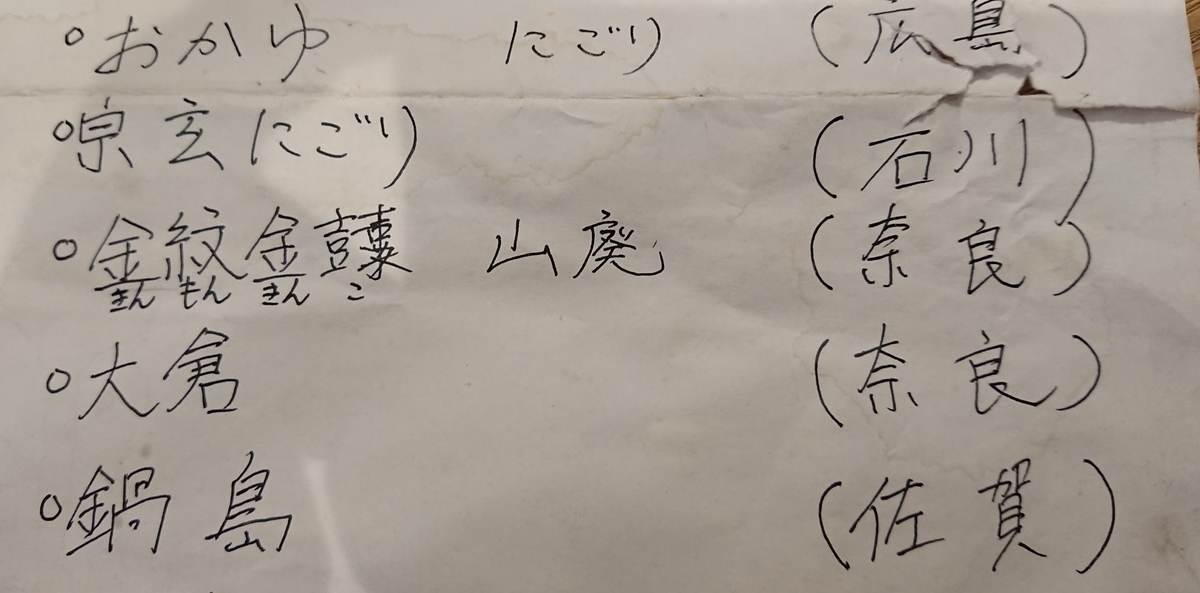 ○おかゆ にごり (広島)
○宗玄にごり (石川)
○金紋金鼓 山廃 (奈良)
きん もん きん こ
○大倉 (奈良)
○鍋島 (佐賀)